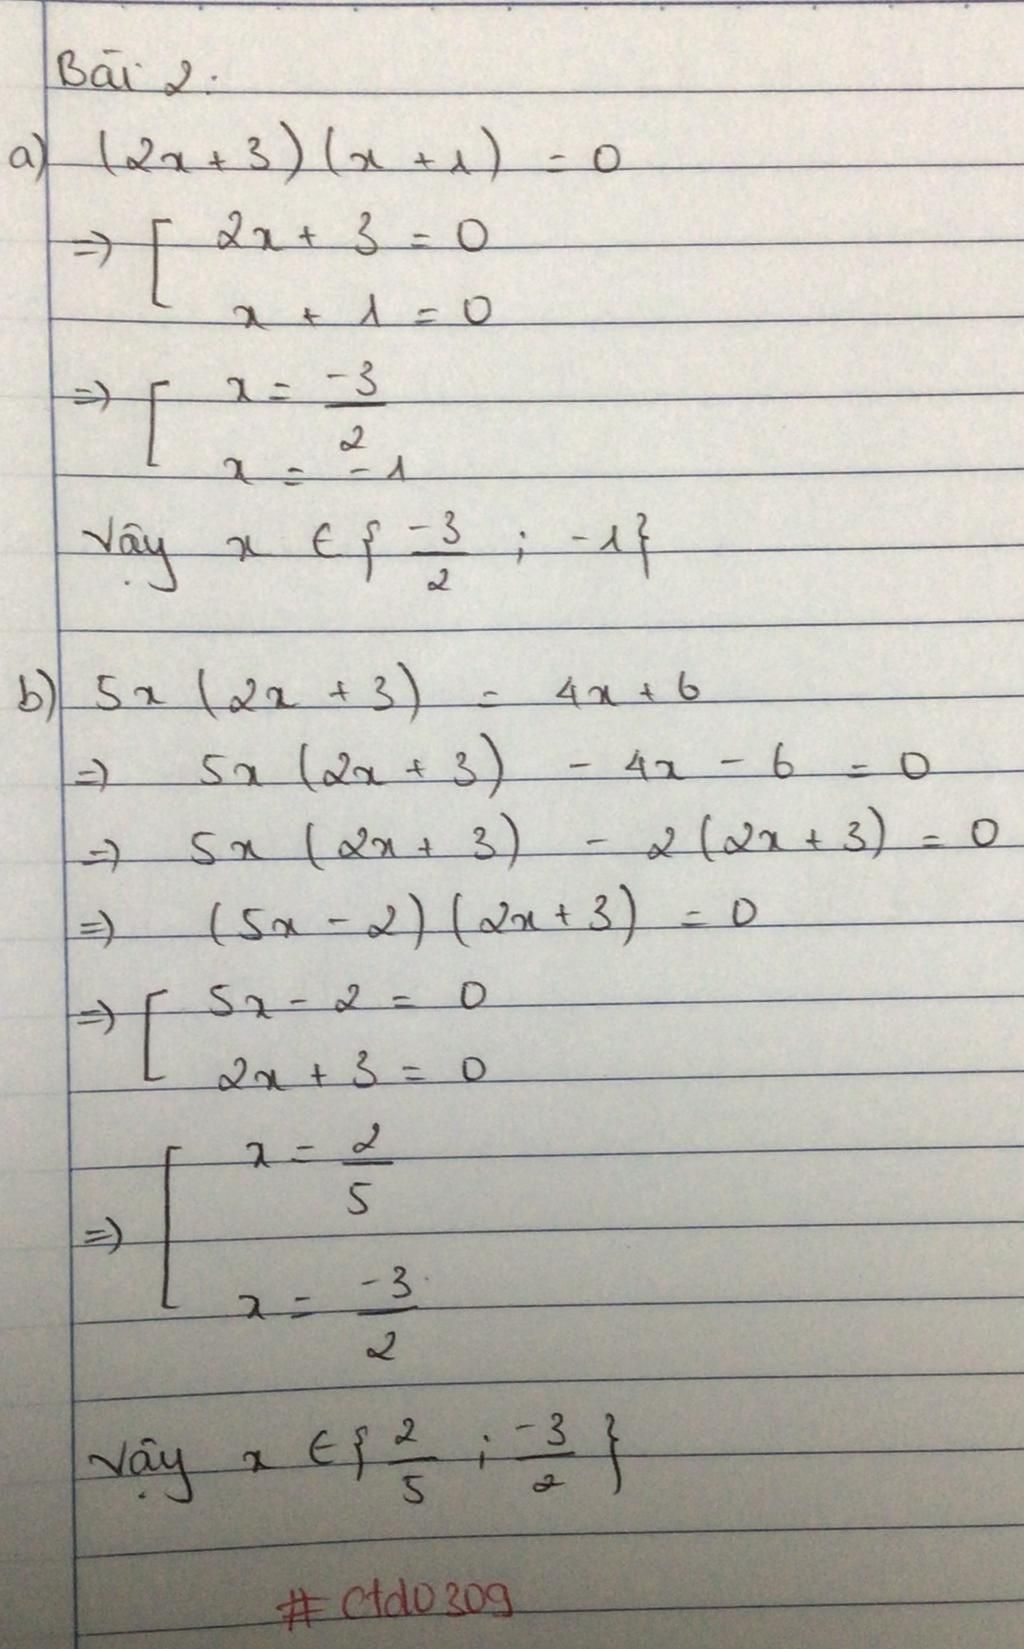 Bài 2.
a) (2x + 3)(x + 1) = 0
=> [ 2x + 3 = 0
x + 1 = 0
=> [ x = -3/2
x = -1
Vậy x ∈ { -3/2 ; -1 }
b) 5x (2x + 3) = 4x + 6
=> 5x (2x + 3) - 4x - 6 = 0
=> 5x (2x + 3) - 2(2x + 3) = 0
=> (5x - 2)(2x + 3) = 0
=> [ 5x - 2 = 0
2x + 3 = 0
=> [ x = 2/5
x = -3/2
Vậy x ∈ { 2/5 ; -3/2 }
# ctd0309